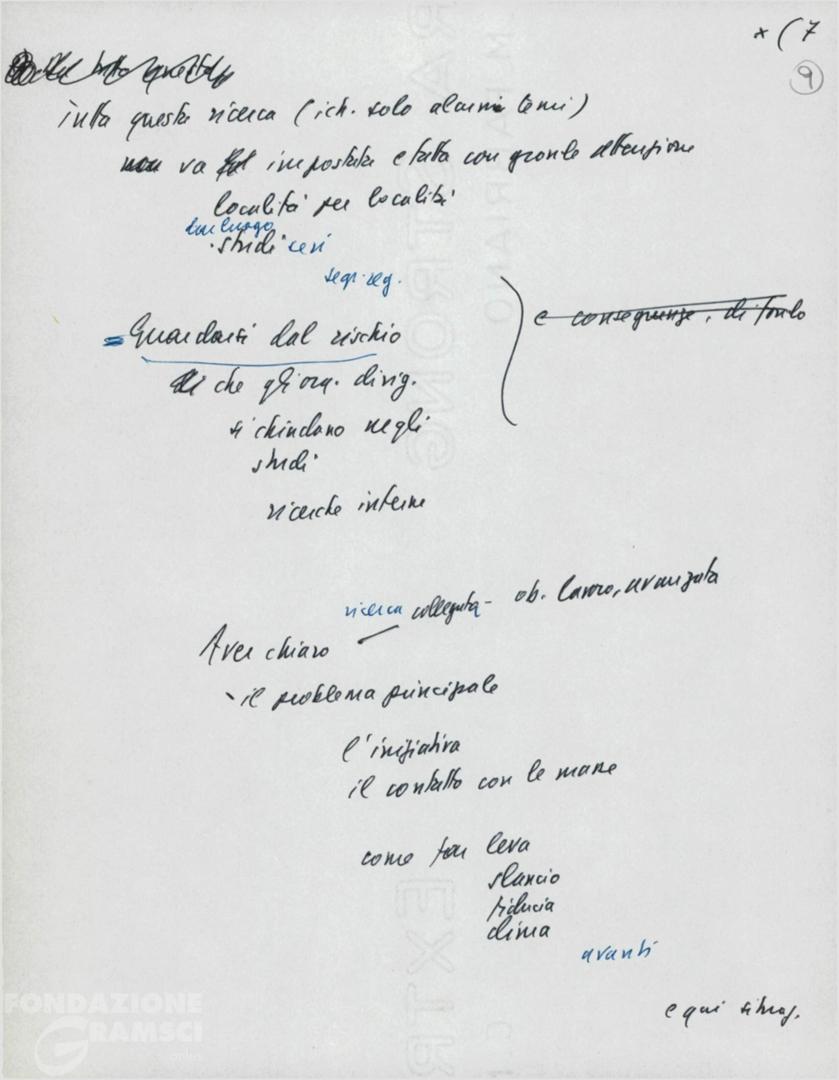 * (7
9
tutta questa ricerca (ich. solo alcuni temi)
va impostata e fatta con grande attenzione
località per località
dar luogo
· studi seri
segr. reg.
e conseguenze, di fondo
= Guardarsi dal rischio
che gli org. dirig.
si chiudano negli
studi
ricerche interne
ricerca collegata - ob. lavoro, avanzata
Aver chiaro
- il problema principale
l'iniziativa
il contatto con le masse
come far leva
slancio
fiducia
clima
avanti
e qui situaz.
FONDAZIONE
GRAMSCI
onlus
EXTR